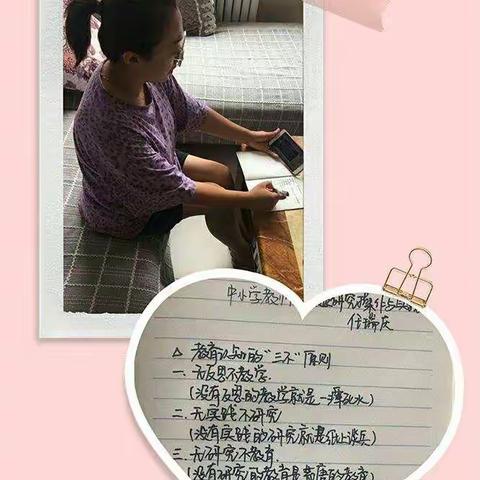 中小学教 研究操作与
任瑞庆
△ 教育认知的“三不”原则
一、无反思不教学.
(没有反思的教学就是一潭死水)
二、无实践不研究
(没有实践的研究就是纸上谈兵)
三、无研究不教育.
(没有研究的教育是 的教育)